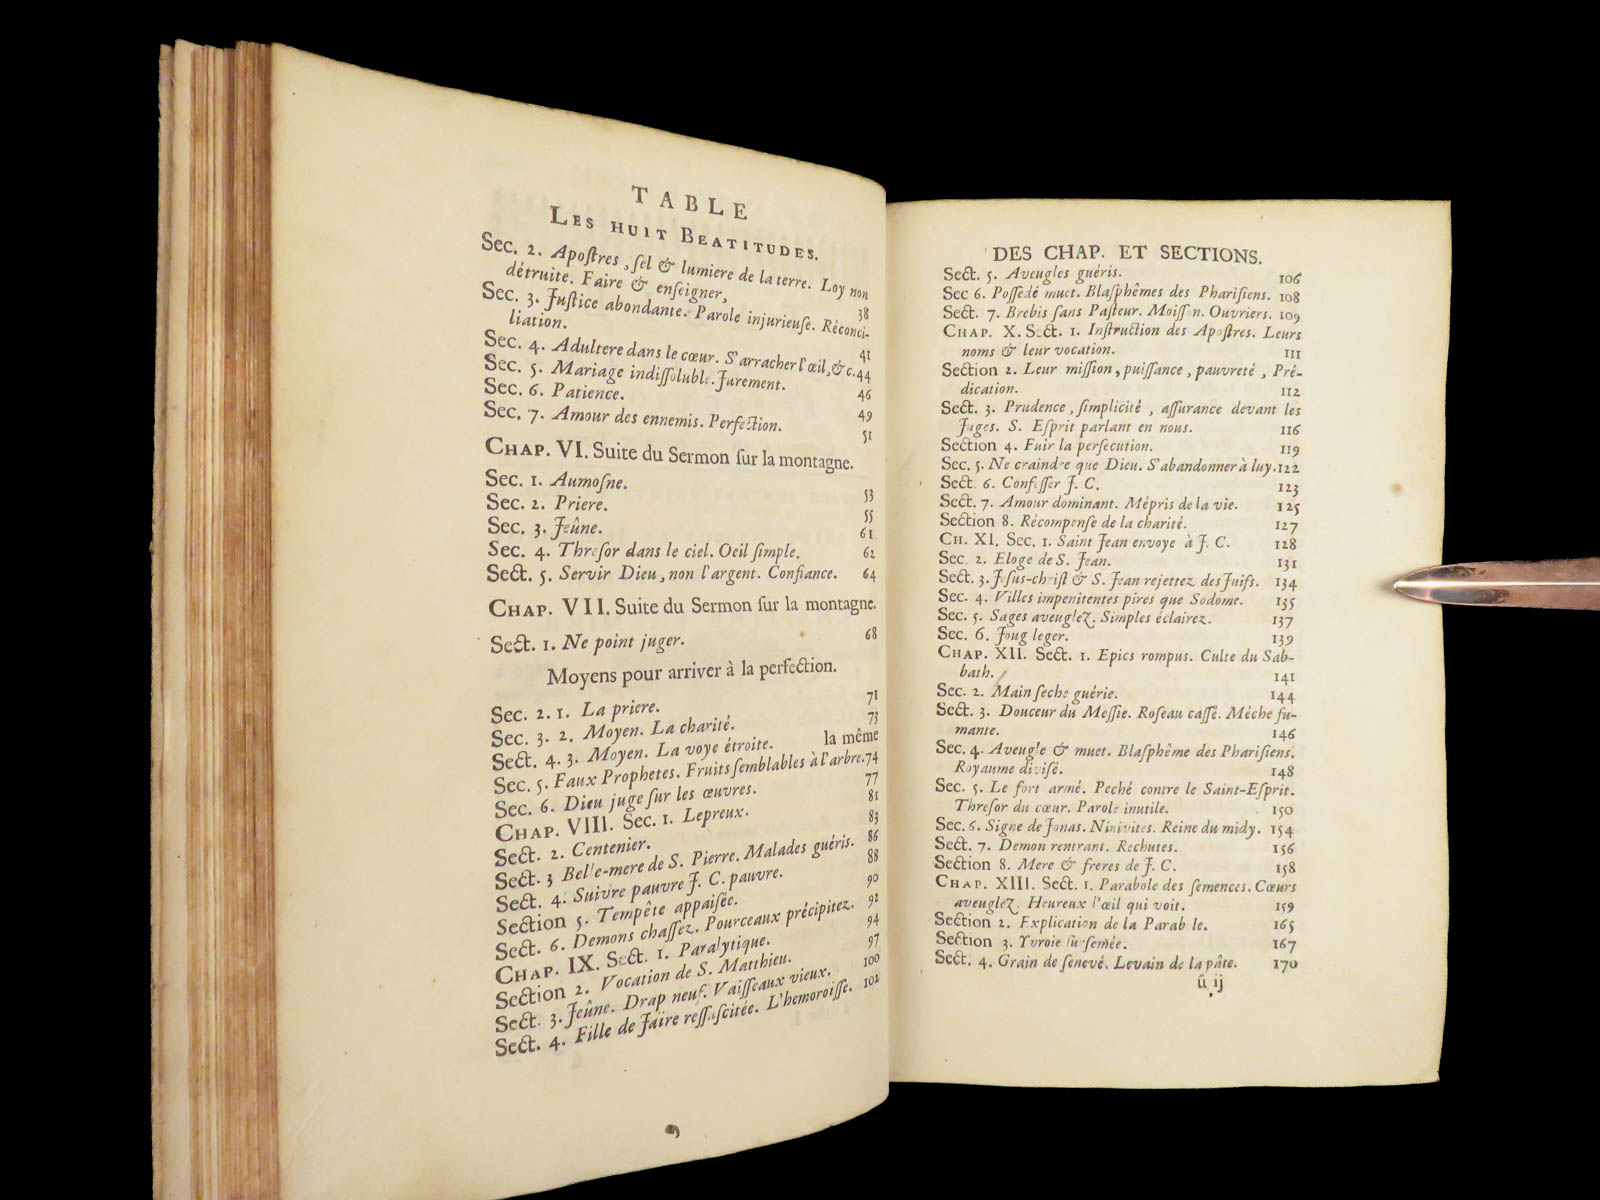 TABLE
LES HUIT BEATITUDES.
Sec. 2. Apoſtres, ſel & lumiere de la terre. Loy non
détruite. Faire & enſeigner, 38
Sec. 3. Juſtice abondante. Parole injurieuſe. Réconci-
liation. 41
Sec. 4. Adultere dans le cœur. S'arracher l'œil, &c. 44
Sec. 5. Mariage indiſſoluble. Jurement. 46
Sec. 6. Patience. 49
Sec. 7. Amour des ennemis. Perfection. 51
CHAP. VI. Suite du Sermon ſur la montagne.
Sec. 1. Aumoſne. 53
Sec. 2. Priere. 55
Sec. 3. Jeûne. 61
Sec. 4. Threſor dans le ciel. Oeil ſimple. 62
Sect. 5. Servir Dieu, non l'argent. Confiance. 64
CHAP. VII. Suite du Sermon ſur la montagne.
Sect. 1. Ne point juger. 68
Moyens pour arriver à la perfection.
Sec. 2. 1. La priere. 71
Sec. 3. 2. Moyen. La charité. 73
Sect. 4. 3. Moyen. La voye étroite. la même
Sec. 5. Faux Prophetes. Fruits ſemblables à l'arbre. 74
Sec. 6. Dieu juge ſur les œuvres. 77
CHAP. VIII. Sec. 1. Lepreux. 81
Sect. 2. Centenier. 83
Sect. 3 Belle-mere de S. Pierre. Malades guéris. 86
Sect. 4. Suivre pauvre J. C. pauvre. 88
Section 5. Tempête appaiſée. 90
Sect. 6. Demons chaſſez. Pourceaux précipitez. 92
CHAP. IX. Sect. 1. Paralytique. 94
Section 2. Vocation de S. Matthieu. 97
Sect. 3. Jeûne. Drap neuf. Vaiſſeaux vieux. 100
Sect. 4. Fille de Jaïre reſſuſcitée. L'hemoroïſſe. 102
DES CHAP. ET SECTIONS.
Sect. 5. Aveugles guéris. 106
Sec 6. Poſſedé muet. Blaſphêmes des Phariſiens. 108
Sect. 7. Brebis ſans Paſteur. Moiſſon. Ouvriers. 109
CHAP. X. Sect. 1. Inſtruction des Apoſtres. Leurs
noms & leur vocation. 111
Section 2. Leur miſſion, puiſſance, pauvreté, Pré-
dication. 112
Sect. 3. Prudence, ſimplicité, aſſurance devant les
Juges. S. Eſprit parlant en nous. 116
Section 4. Fuir la perſecution. 119
Sec. 5. Ne craindre que Dieu. S'abandonner à luy. 122
Sect. 6. Confeſſer J. C. 123
Sect. 7. Amour dominant. Mépris de la vie. 125
Section 8. Récompenſe de la charité. 127
CH. XI. Sec. 1. Saint Jean envoye à J. C. 128
Sec. 2. Eloge de S. Jean. 131
Sect. 3. Jeſus-chriſt & S. Jean rejettez des Juifs. 134
Sec. 4. Villes impenitentes pires que Sodome. 135
Sec. 5. Sages aveuglez. Simples éclairez. 137
Sec. 6. Joug leger. 139
CHAP. XII. Sect. 1. Epics rompus. Culte du Sab-
bath. 141
Sec. 2. Main ſeche guérie. 144
Sect. 3. Douceur du Meſſie. Roſeau caſſé. Méche fu-
mante. 146
Sec. 4. Aveugle & muet. Blaſphême des Phariſiens.
Royaume diviſé. 148
Sec. 5. Le fort armé. Peché contre le Saint-Eſprit.
Threſor du cœur. Parole inutile. 150
Sec. 6. Signe de Jonas. Ninivites. Reine du midy. 154
Sect. 7. Demon rentrant. Rechutes. 156
Section 8. Mere & freres de J. C. 158
CHAP. XIII. Sect. 1. Parabole des ſemences. Cœurs
aveuglez. Heureux l'œil qui voit. 159
Section 2. Explication de la Parabole. 165
Section 3. Yvroie ſurſemée. 167
Sect. 4. Grain de ſenevé. Levain de la pâte. 170
ũ ij